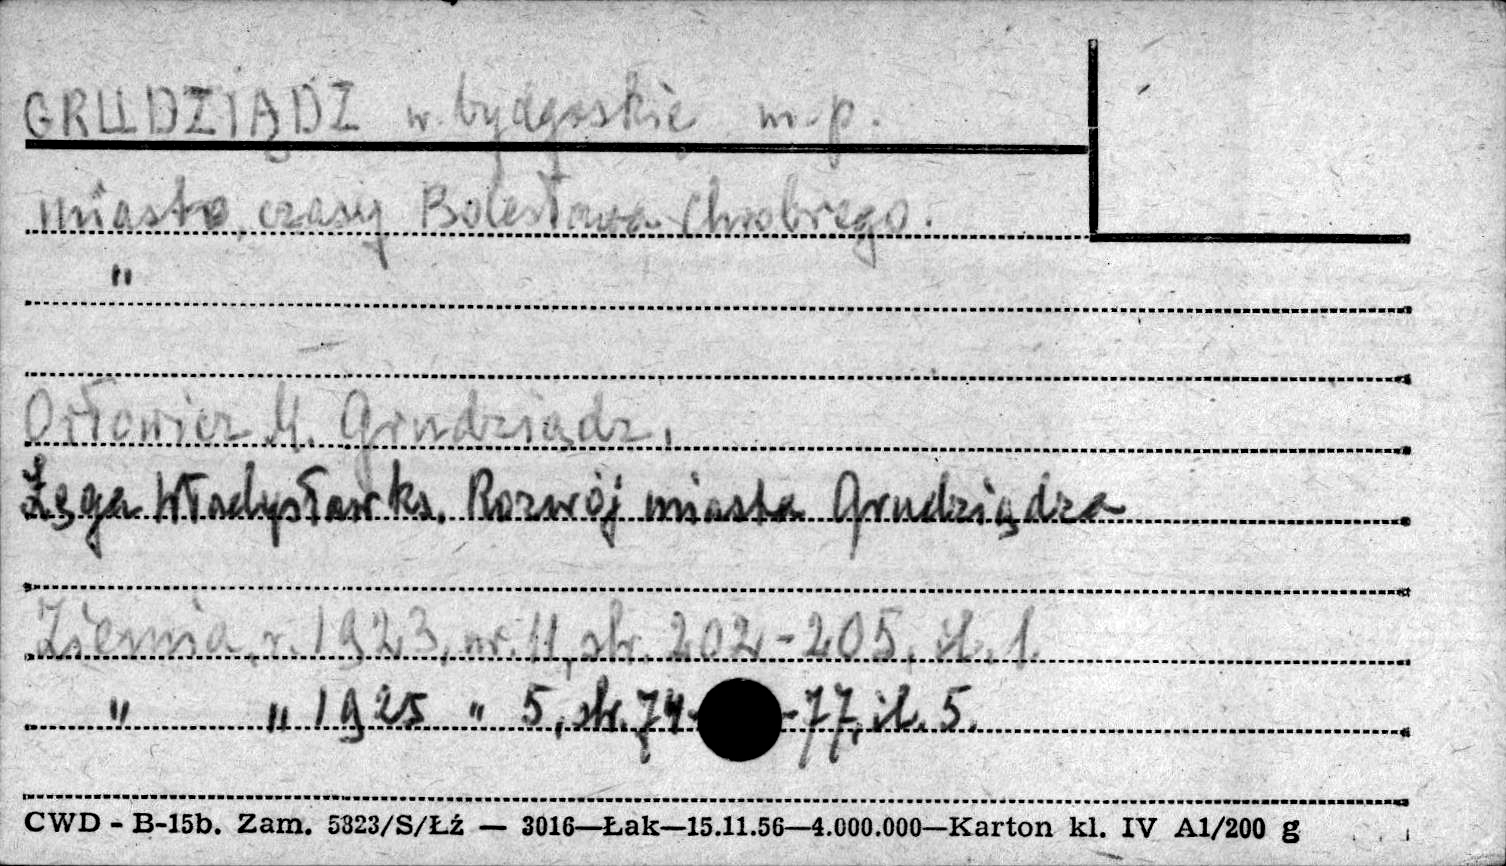 GRUDZIĄDZ w. bydgoskie m. p.
miasto, czasy Bolesława Chrobrego.
"
Orłowicz M. Grudziądz.
Łęga Władysław ks. Rozwój miasta Grudziądza
Ziemia, r. 1923, nr. 11, str. 202-205, il. 1.
" " 1925 " 5, str. 74--77, il. 5.
CWD - B-15b. Zam. 5323/S/Łź — 3016—Łak—15.11.56—4.000.000—Karton kl. IV A1/200 g